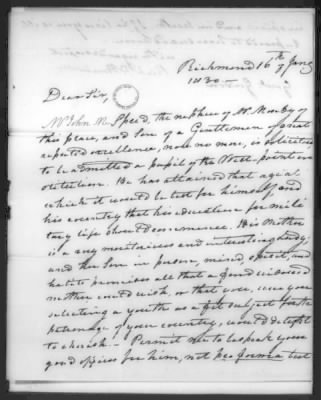 Richmond 16th Jany
1830 –
Dear Sir,
Mr John M. Speed, the nephew of Mr Mosby of
this place, and Son of a Gentleman of great
reputed excellence, now no more, is solicitous
to be admitted a pupil of the West-point in-
stitution. He has attained that age at
which it would be best for himself and
his country that his education for mili
tary life should commence. His Mother
is a very meritorious and interesting lady;
and the Son in person, mind, and
habits promises all that a fond widowed
mother could wish, or that one, were you
selecting a youth as a fit subject for the
patronage of your country, would delight
to cherish – Permit me to bespeak your
good offices for him, not pro forma but